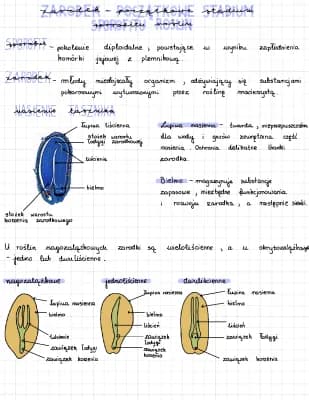 ZARODEK - POCZĄTKOWE STADIUM
SPOROFITU ROŚLIN
SPOROFIT - pokolenie diploidalne, powstające w wyniku zapłodnienia
komórki jajowej z plemnikową.
ZARODEK - młody wielojący organizm, odżywiający się substancjami
pokarmowymi wytwarzanymi przez roślinę macierzystą.
NASIENIE TASZNIKA
łupina liścienna
stożek wzrostu
łodygi zarodkowej
liścienie
bielmo
stożek wzrostu
korzenia zarodkowego
Łupina nasienna - twarda, nieprzepuszczalna
dla wody i gazów zewnętrzna część
nasienia. Ochrania delikatne tkanki
zarodka.
Bielmo - magazynuje substancje
zapasowe, niezbędne funkcjonowania
i rozwoju zarodka, a następnie siewki.
U roślin nagozalążkowych zarodki są wieloliścienne, a u okrytozalążkowych
- jedno lub dwuliścienne.
nagozalążkowe
łupina nasienna
bielmo
liścienie
zawiązek łodygi
zawiązek korzenia
jednoliścienne
łupina nasienna
bielmo
liścień
zawiązek
łodygi
zawiązek
korzenia
dwuliścienne
łupina nasienna
bielmo
liścień
zawiązek łodygi
zawiązek korzenia